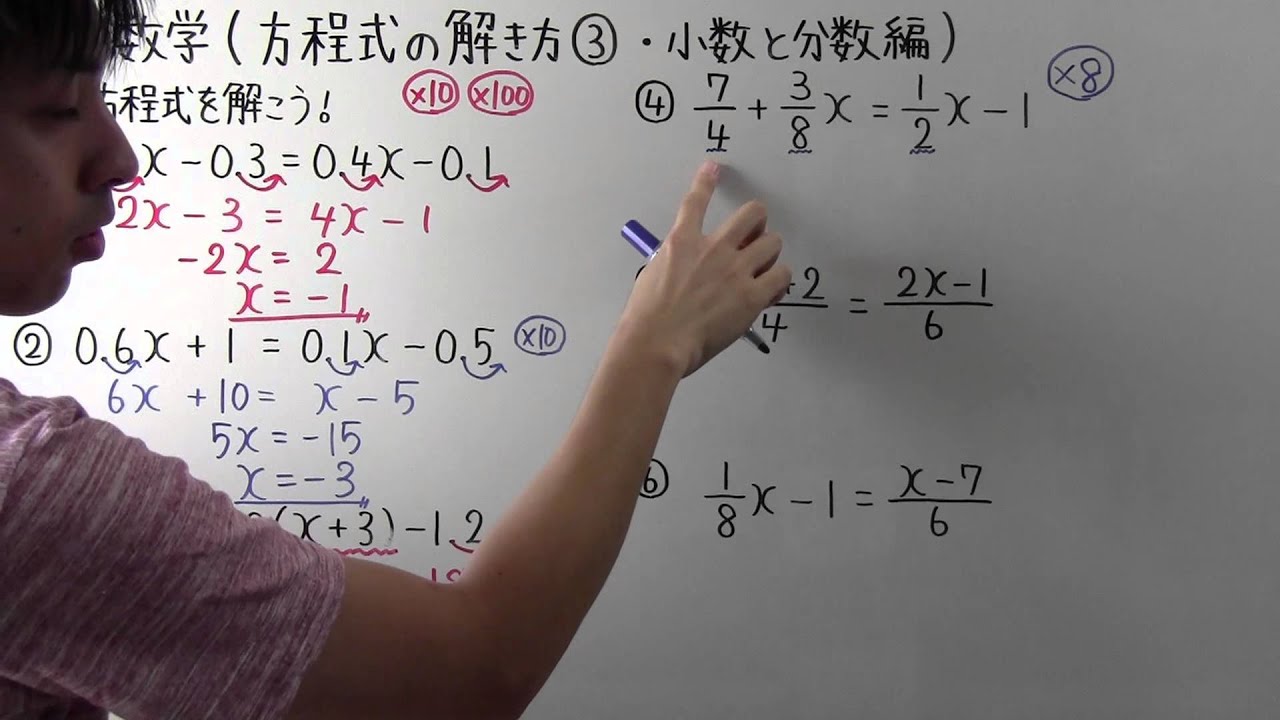 数学(方程式の解き方③・小数と分数編)
方程式を解こう! ×10 ×100
x-0.3=0.4x-0.1
2x-3=4x-1
-2x=2
x=-1
② 0.6x+1=0.1x-0.5 ×10
6x+10=x-5
5x=-15
x=-3
(x+3)-1.2
④ 7/4+3/8x=1/2x-1 ×8
+2/4=2x-1/6
⑥ 1/8x-1=x-7/6